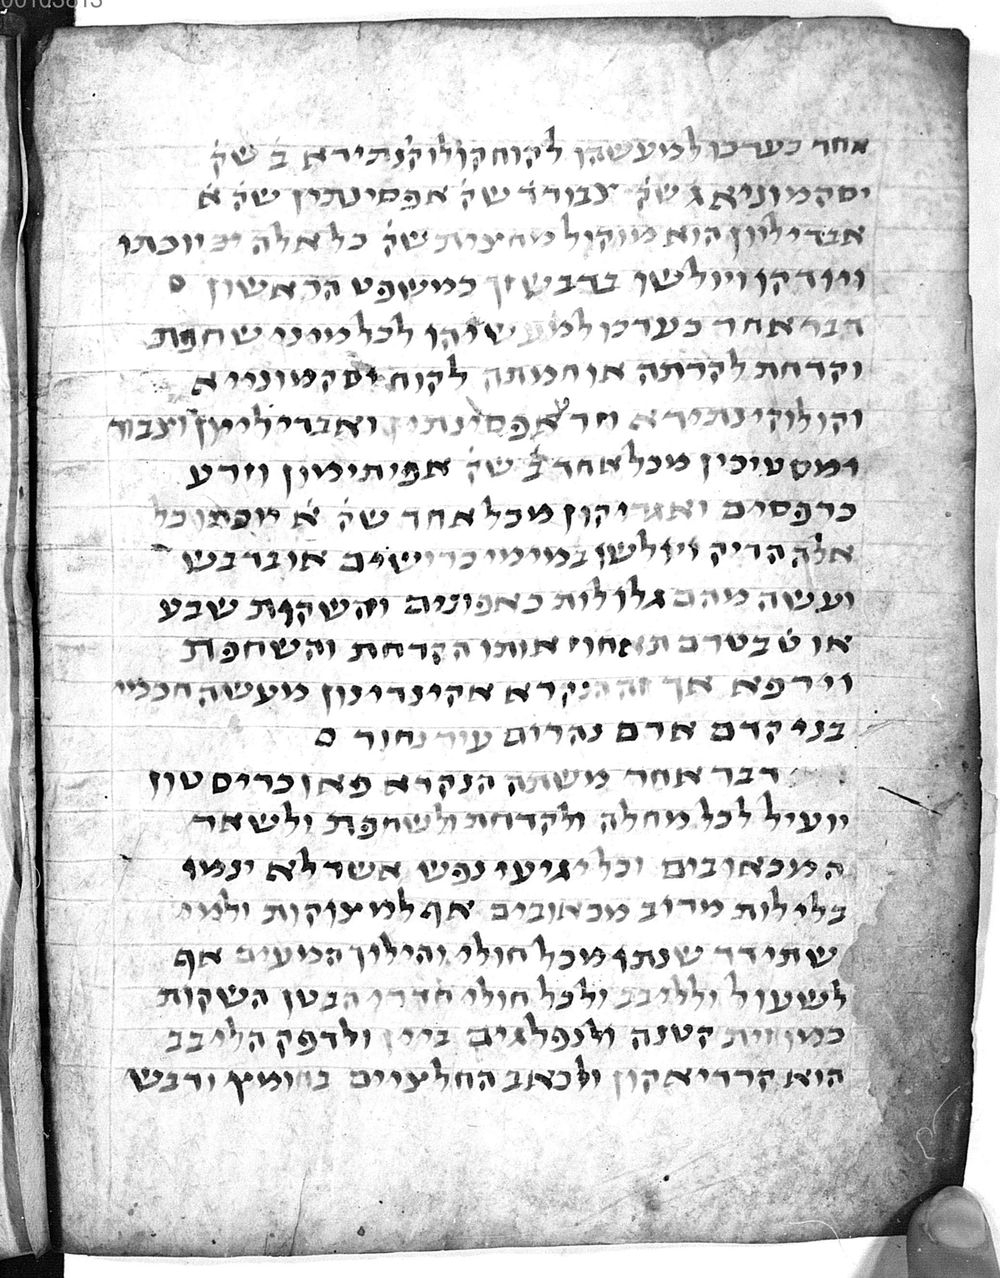 אחד כערכו למעשהו לקוח קולוקנתידא ב̇ שק̇
יסקמוניא ג̇ שק̇ צבורד שק̇ אפסינתין שק̇ א̇
אבדיליון הוא מוקול מחצית שק̇ כל אלה יכיוכתו
וידקו וילושו בדבש זך כמשפט הראשון ס
דבר אחד כערכו למעשיהו לכל מיני שחפת
וקדחת לקרתה או חמתה לקוח יסקמוניא
וקולוקינתידא חד אפסינתין ואבדיליון וצבור
ומסטיכין מכל אחד ב̇ שק̇ אפיתימון וזרע
כרפסים ואגריקון מכל אחד שק̇ א̇ וכתו כל
אלה הדיק וילושן במימי כרישים או בדבש
ועשה מהם גלולות כאפונים והשקות שבע
או ט̇ בטרם תאחוז אותו הקדחת והשחפת
וירפא אך זה הנקרא אקינדינון מעשה חכמי
בני קדם ארם נהרים עיר נחור ס
דבר אחר משתה הנקרא פאוכריסטון
יועיל לכל מחלה ולקדחת ולשחפת ולשאר
המכאובים וכל יגיעי נפש אשר לא ינמו
בלילות מרוב מכאובים אף למצוקות ולמי
שתידד שנתו מכל חולי והילוך המעים אף
לשעול וללבב ולכל חולי חדרי הבטן השקות
כמו זית קטנה ולנפלגים ביין ולדפק הליבב
הוא קרדיאקון ולכאב החלציים בחומץ ודבש
001d3813